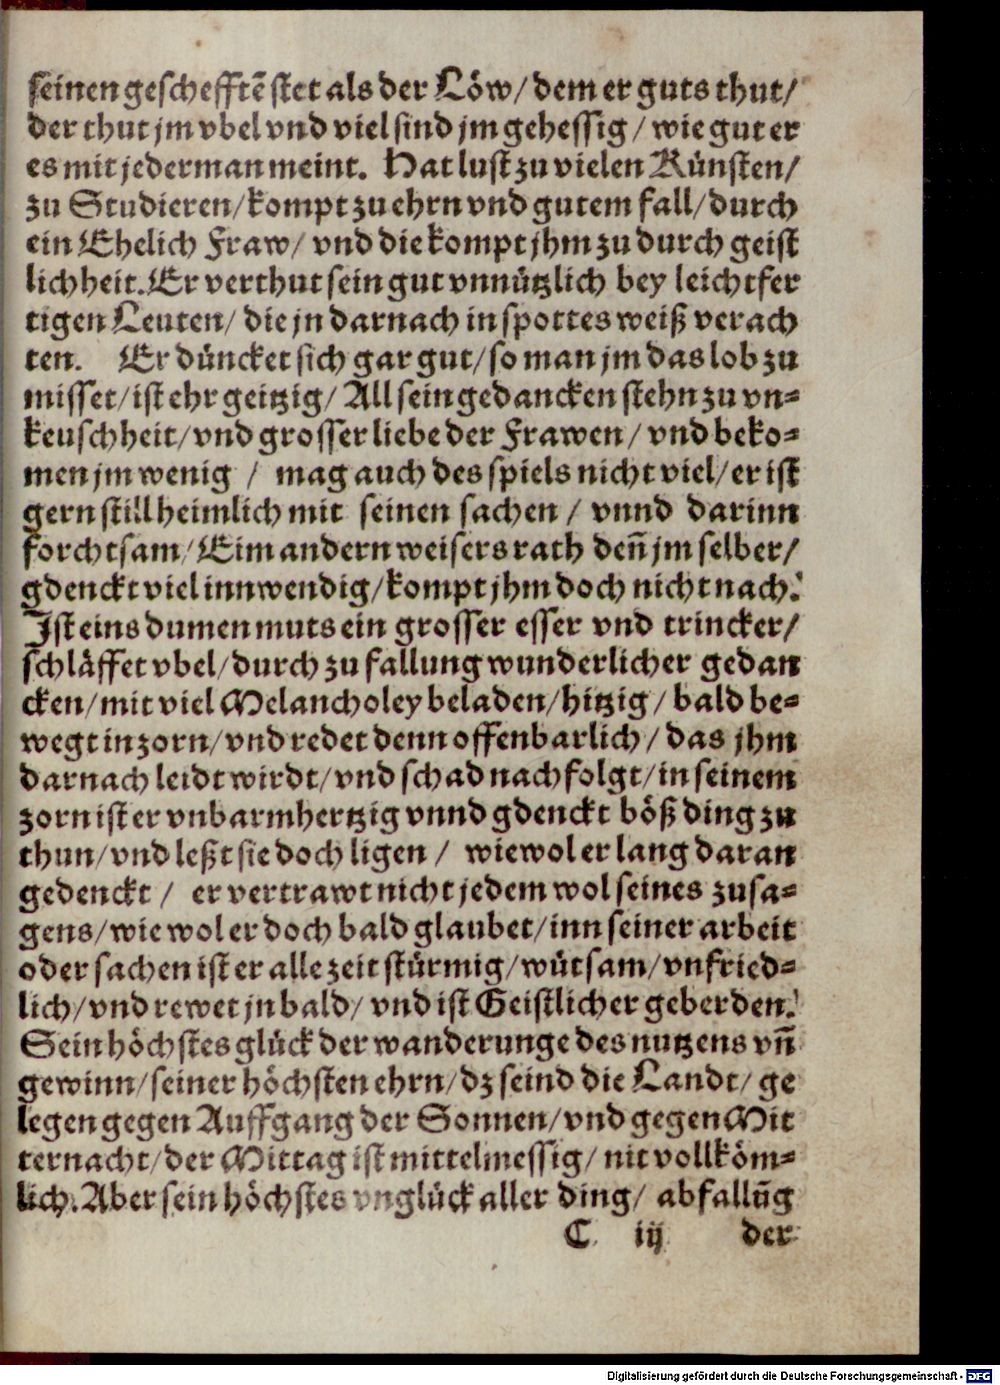 seinen geschefftē stet als der Löw/ dem er guts thut/
der thut jm vbel vnd viel sind jm gehessig/ wie gut er
es mit jederman meint. Hat lust zu vielen Künsten/
zu Studieren/ kompt zu ehrn vnd gutem fall/ durch
ein Ehelich Fraw/ vnd die kompt jhm zu durch geist
lichheit. Er verthut sein gut vnnützlich bey leichtfer
tigen Leuten/ die jn darnach in spottes weiß verach
ten. Er düncket sich gar gut/ so man jm das lob zu
misset/ ist ehrgeitzig/ All sein gedancken stehn zu vn-
keuschheit/ vnd grosser liebe der Frawen/ vnd beko-
men jm wenig / mag auch des spiels nicht viel/ er ist
gern still heimlich mit seinen sachen / vnnd darinn
forchtsam/ Eim andern weisers rath deñ jm selber/
gdenckt viel innwendig/ kompt jhm doch nicht nach.
Ist eins dumen muts ein grosser esser vnd trincker/
schläffet vbel/ durch zufallung wunderlicher gedan
cken/ mit viel Melancholey beladen/ hitzig/ bald be-
wegt in zorn/ vnd redet denn offenbarlich/ das jhm
darnach leidt wirdt/ vnd schad nachfolgt/ in seinem
zorn ist er vnbarmhertzig vnnd gdenckt böß ding zu
thun/ vnd leßt sie doch ligen / wiewol er lang daran
gedenckt / er vertrawt nicht jedem wol seines zusa-
gens/ wiewol er doch bald glaubet/ inn seiner arbeit
oder sachen ist er allezeit stürmig/ wütsam/ vnfried-
lich/ vnd rewet jn bald/ vnd ist Geistlicher geberden.
Sein höchstes glück der wanderunge des nutzens vñ
gewinn/ seiner höchsten ehrn/ dz seind die Landt/ ge
legen gegen Auffgang der Sonnen/ vnd gegen Mit
ternacht/ der Mittag ist mittelmessig/ nit vollköm-
lich. Aber sein höchstes vnglück aller ding/ abfallūg
C iij der
Digitalisierung gefördert durch die Deutsche Forschungsgemeinschaft - DFG